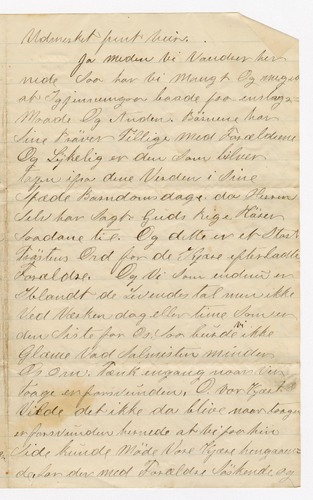 Udmerket fint Veir.
Ja meden Vi Vandrer her
nede Saa har Vi Mangt Og meget
at Igjennemgaa baade paa en slags
Maade Og Anden. Børnene har
Sine Prøver Tillige Med Forældrene
Og Lykelig er den Som bliver
ifra dene Verden i Sine
Spæde Barndoms dage. da Herren
Selv har Sagt Guds Rige Hører
Saadane til. Og dette er et Stort
Trøstens Ord for de Kjære efterladte
Forældre. Og Vi Som endnu er
Iblandt de Levendes tal men ikke
Ved Verken dag eller time Som er
den Siste for Os. Saa burde Vi ikke
Glæme Vad Salmisten minder
Os Om. Tænk engang naar den
taage er forsvunden. O Vor Hjært
Vilde det ikke da blive naar taagen
er forsvunden hernede at Vi paa hin
Side kunde Møde Vore Kjære hengangne
der med Forældre Søskende og